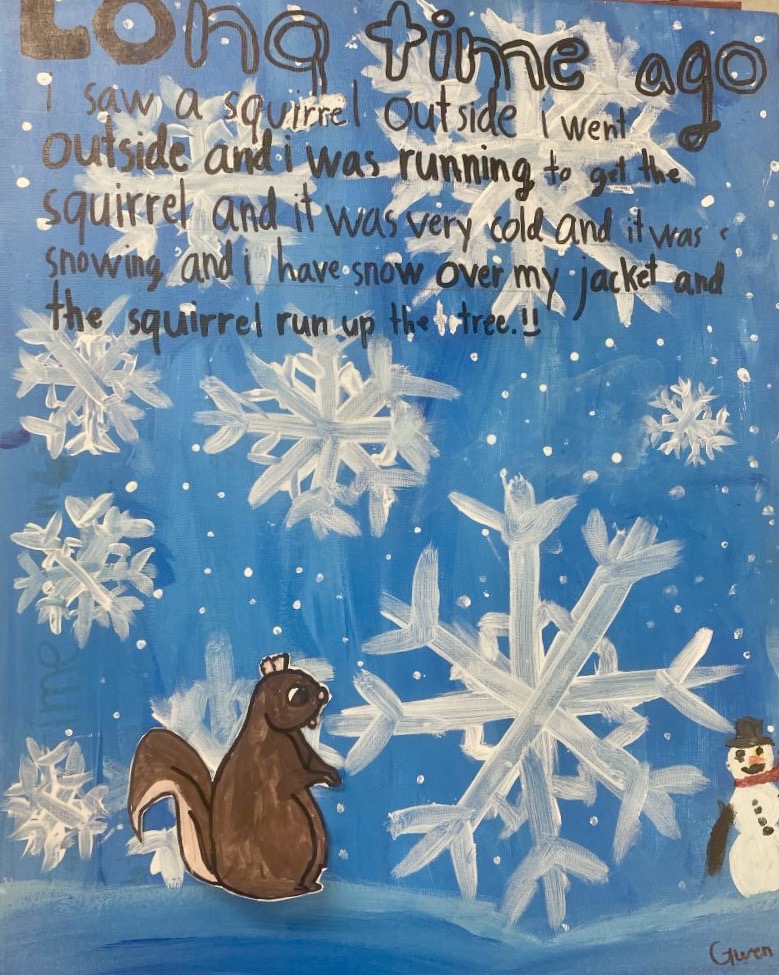 Long time ago
I saw a squirrel outside i went
outside and i was running to get the
squirrel and it was very cold and it was
snowing and i have snow over my jacket and
the squirrel run up the tree.!!
time
Gwen